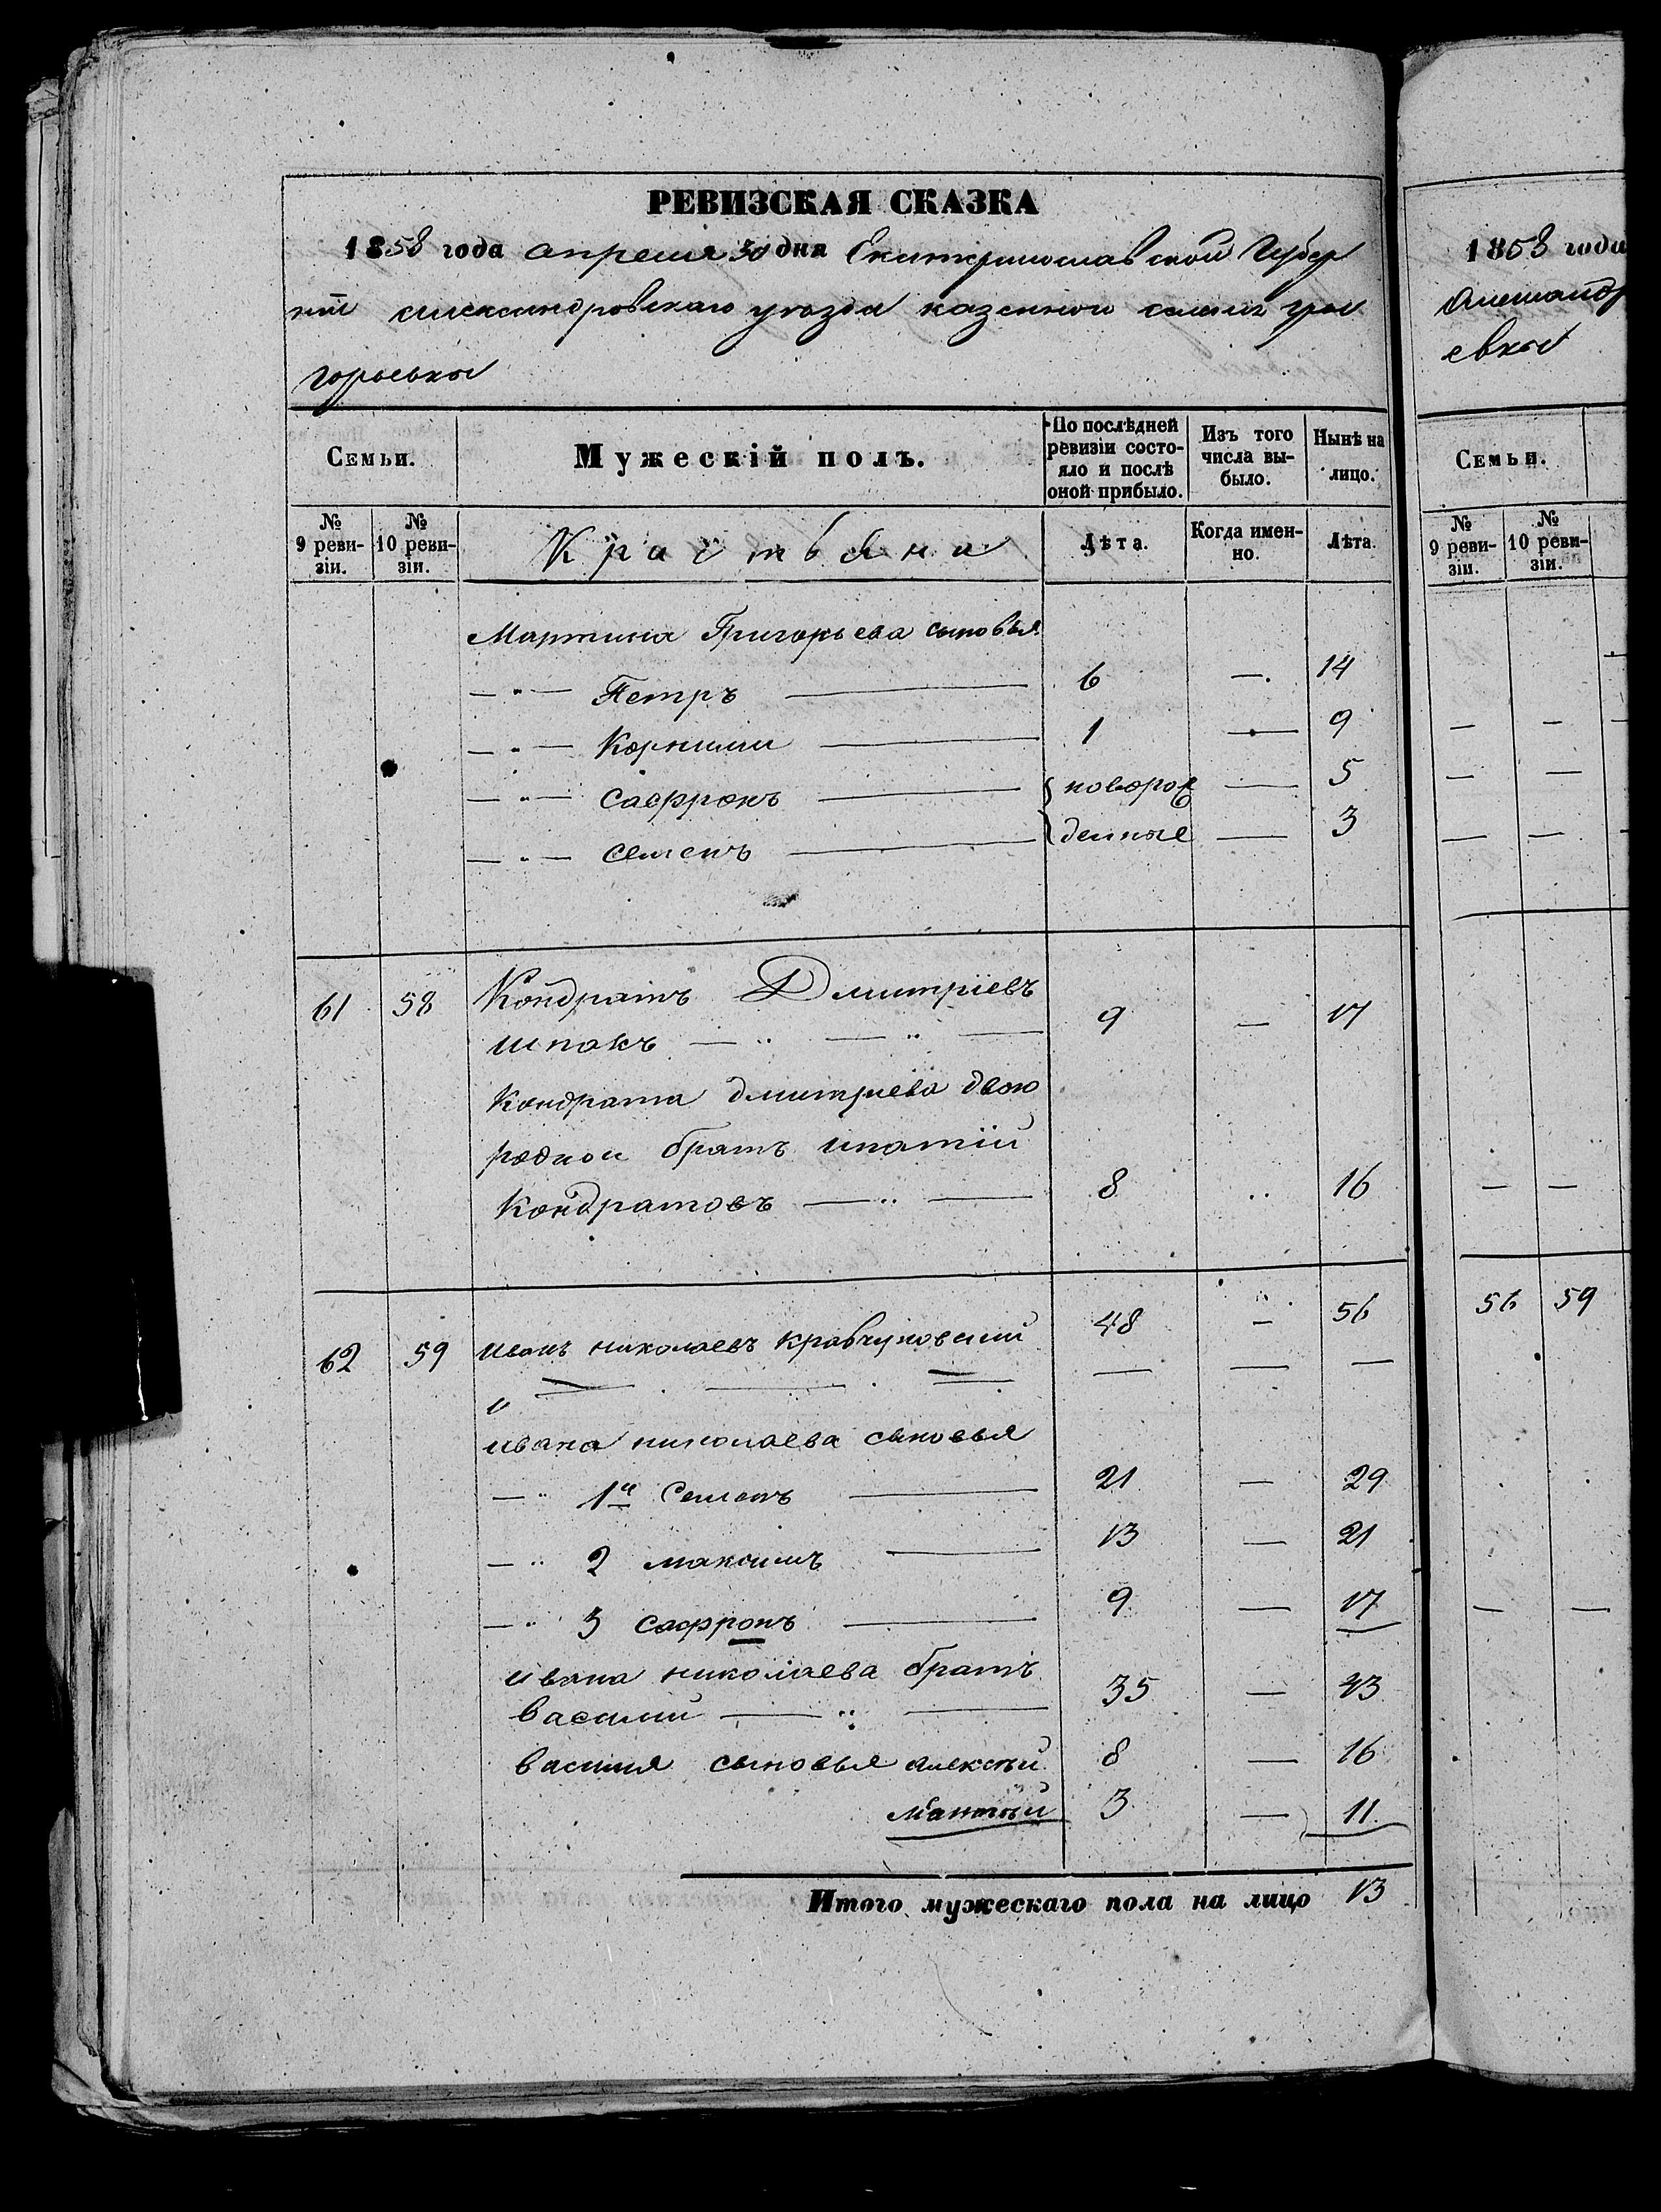 РЕВИЗСКАЯ СКАЗКА
1858 года апреля 30 дня Екатеринославской Губер
нiи александровскаго уезда казенной селенiя Гри
горьевки
Семьи.
Мужескiй полъ.
По послѣдней ревизiи состо-
яло и послѣ оной прибыло.
Изъ того числа вы-
было.
Нынѣ на лицо.
№ 9 реви-
зiи.
№ 10 реви-
зiи.
Крестьяне
Лѣта.
Когда имен-
но.
Лѣта.
Мартина Григорьева сыновья
— " — Петръ — 6 — 14
— " — Корнилий — 1 — 9
— " — Сафронъ — новорож — 5
— " — Семенъ — денные — 3
61 58 Кондратъ Дмитрiевъ
Шпакъ — 9 — 17
Кондрата Дмитриева двою
родной братъ ипатiй
Кондратовъ — 8 .. 16
62 59 Иванъ николаевъ Кравчуновский 48 — 56
ивана николаева сыновья
— " 1й Семенъ — 21 — 29
— " 2 максимъ — 13 — 21
— " 3 сафронъ — 9 — 17
ивана николаева братъ
василий — 35 — 43
василия сыновья алексѣй 8 — 16
Матвѣй 3 — 11
Итого мужескаго пола на лицо 13
1858 года
Александр
евки
Семьи.
№ 9 реви-
зiи.
№ 10 реви-
зiи.
56 59